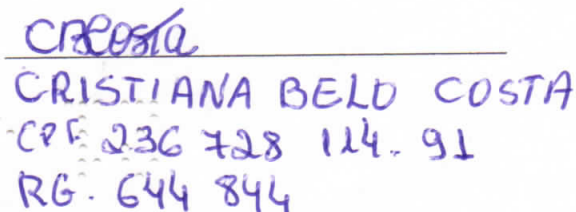 CBCosta
CRISTIANA BELO COSTA
CPF. 236 728 114. 91
RG. 644 844